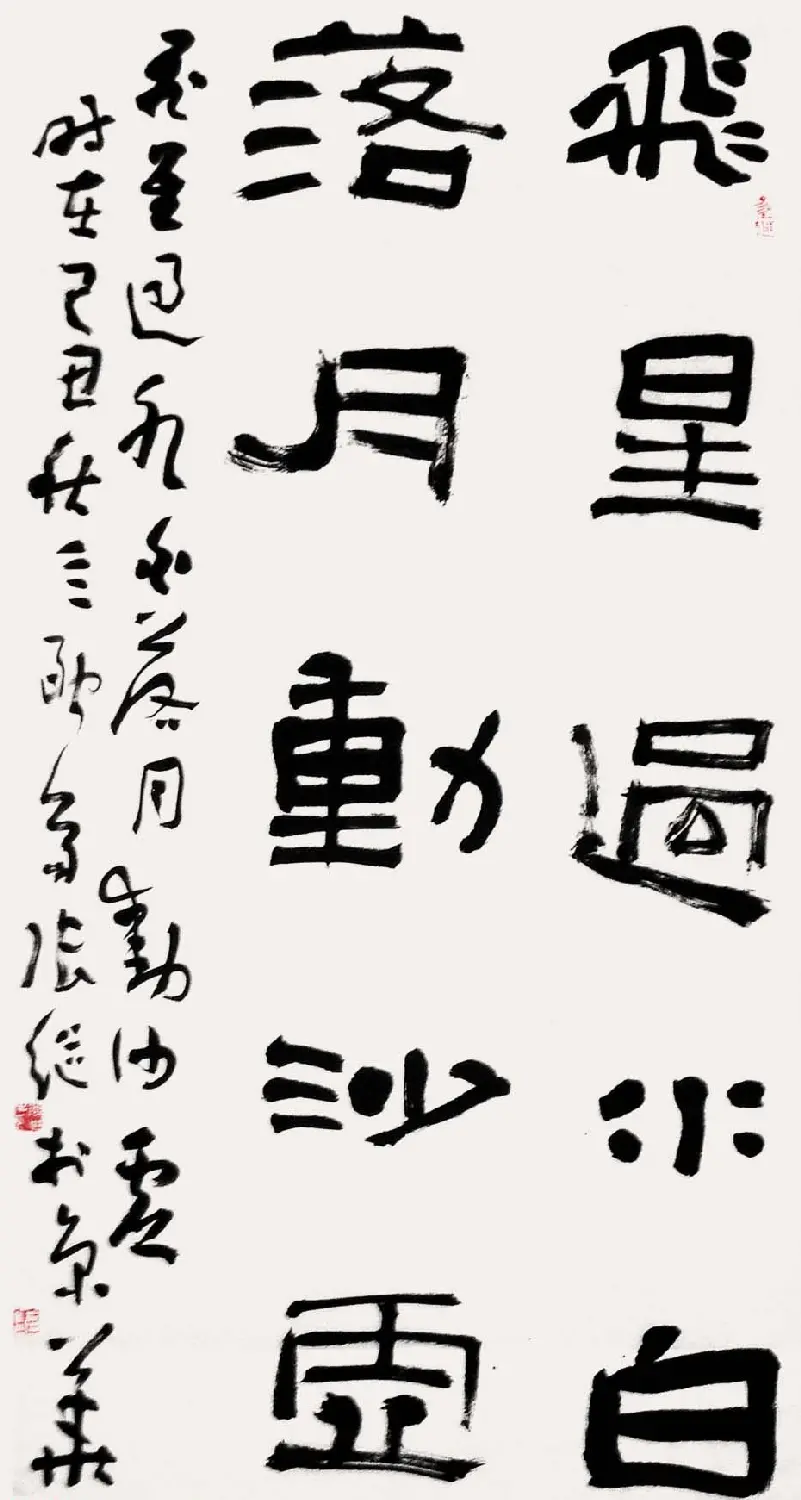 飛星過水白
落月動沙虛
飛星過水白落月動沙虛
时在己丑秋三斋張繼於京華